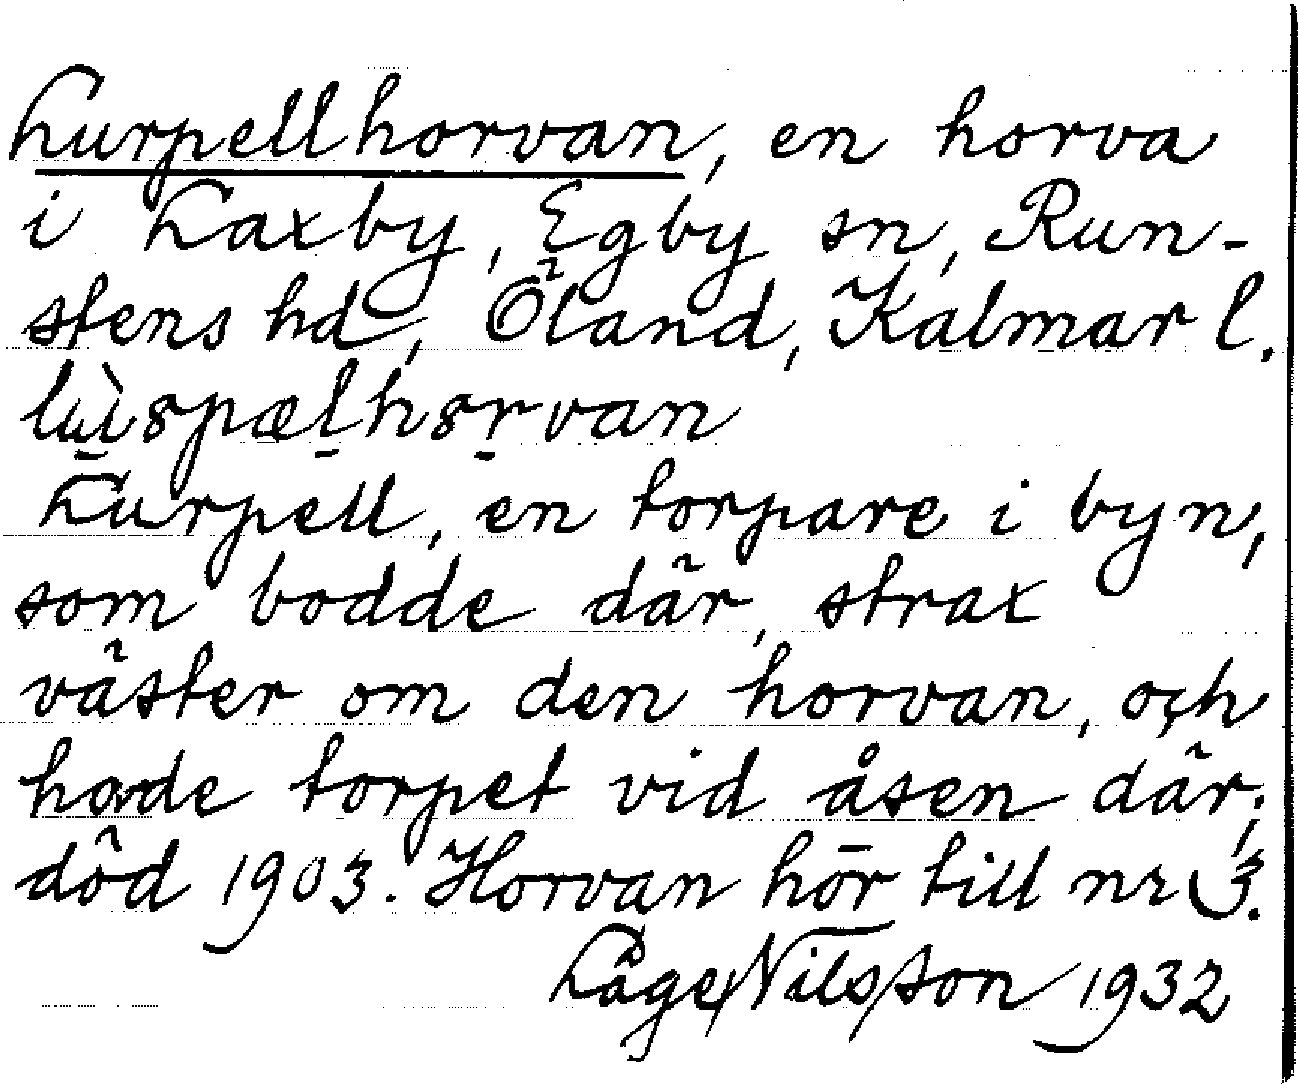 Lurpellhorvan, en horva
i Laxby, Egby sn, Run-
stens hd, Öland, Kalmar l.
Lurpell, en torpare i byn,
som bodde där, strax
väster om den horvan, och
hade torpet vid åsen där;
död 1903. Horvan hör till nr 3.
Låge Nilsson 1932